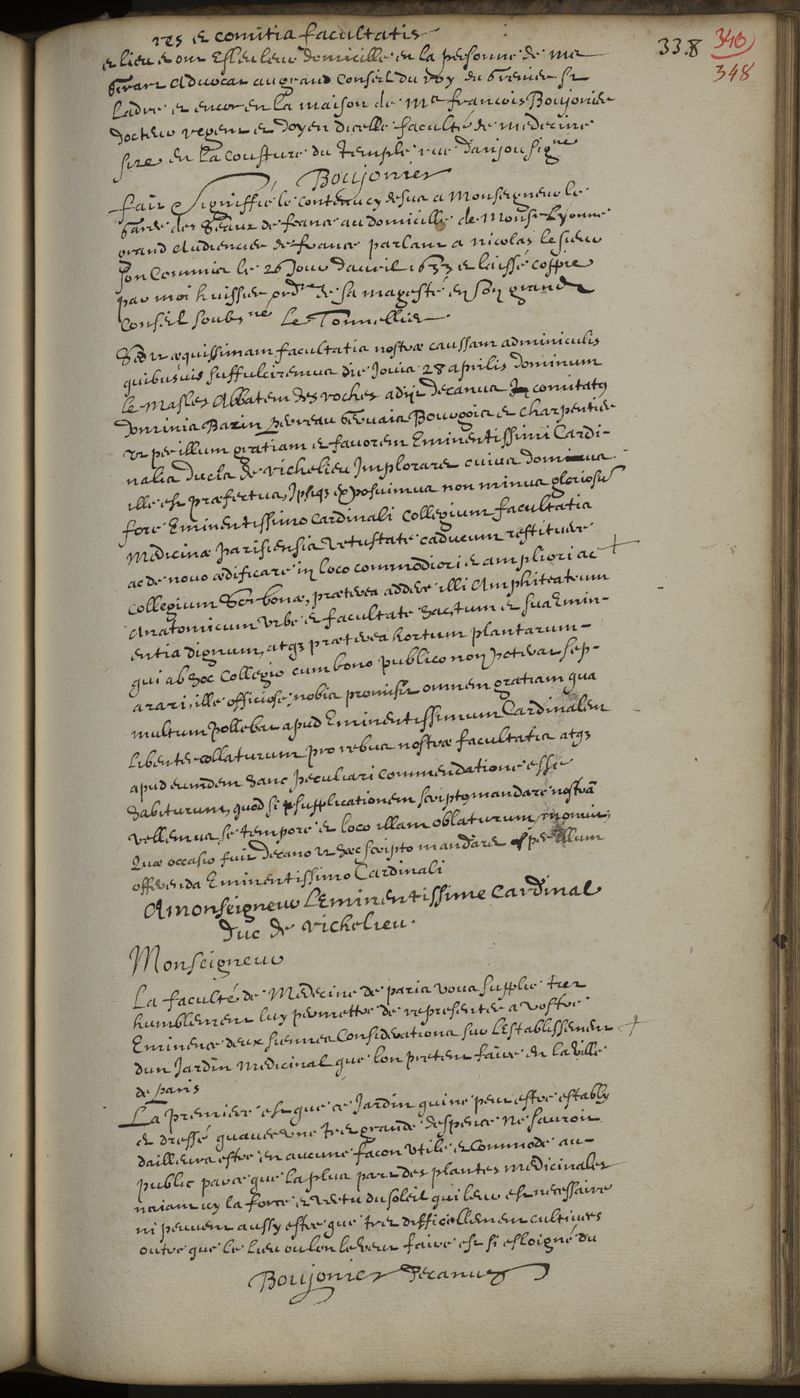 res et comitia facultatis
338
340
348
et lieu et ont esleu leur domicille en la personne de me
Advocat au grand Conseil du Roy
Ladre et encor en la maison de Mre francois Boujonier
docteur regent et doyen dicelle faculté de medecine
size en la cousture du temple rue danjou signe
Boujonier
fait et signiffié le contenu cy desus a Monseigneur le
garde des Seaux de france au domicille de Monsr Lyonne
grand Audiencier de france parlant a nicolas le sieur
son Commis le 26 Jour davril 1633 et laissé coppie
par moi huissier ordre de sa magesté en son grand
Conseil soubsne Le Tonnellier
Sed ut æquissimam facultatis nostræ caussam adminiculis
quibusvis suffulciremus die Jovis 28 aprilis dominum
le Masles Abbatem des roches adijt decanus comitatq
dominis Bazin perreau Gervais Bourgois et Charpentier
ut per illum gratiam et favorem Eminentissimi Cardi-
nalis Ducis de richelieu Imploraret cuius domus
ille est præfectus, Ipsiq exposuimus non minus gloriosũ
fore Eminentissimo Cardinali Collegium facultatis
Medicinæ parisiensis vetustate caducum restituere
ac de novo ædificare in loco commodiori et ampliori ac
Collegium Sorbonæ, præterea addere illi Amphiteatrum
Anatomicum urbe et facultate hac tum et sua Emin-
entia dignum, atq præterea hortum plantarum
qui ab hoc Collegio cum bono publico non poterat sep-
arari, ille officiose nobis promisit omnem gratiam qua
multum pollebat apud Eminentissimum Cardinalem
libenter collaturum pro rebus nostræ facultatis atq
apud eumdem hanc peculiari Commendatione esse
habiturum, quod si supplicationem scripto mandare nostrã
vellemus, se tempore et loco illam oblaturum
Quæ occasio fuit decano ut hæc scripto mandaret per illum
offerenda Eminentissimo Cardinali
A monseigneur L'Eminentissime Cardinal
duc de richelieu.
Monseigneur
La faculté de Medecine de paris vous supplie tres
humblement luy permettre de representer a vostre
Eminence deux siennes Considerations sur L'Establissement
dun Jardin Medicinal que lon pretent faire en la ville
de paris
La premiere est que ce Jardin qui ne peut estre estably
et dressé quavec une tres grande despence ne sauroit
dailleurs estre en aucune facon utile et Commode au
public parce que la plus part des plantes medicinales
naiant icy la force et vertu du soleil qui leur est necessaire
ni peuvent aussy estre que tres difficillement cultivees
outre que le lieu ou lon le veut faire est si esloigné du
Boujonier decanus